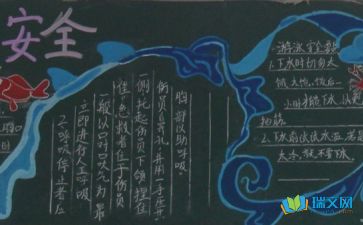 安全
2.呼吸停止者应
立即进行人工呼吸
一般以口对口吹气为最
佳。急救者位于伤员
一侧托起伤员下颌捏住
伤员鼻孔,并用一手压其
胸部以助呼吸
游泳安全
1.下水时切勿太
饿、太饱。饭后一
小时才能下水,以免
抽筋
2.下水前试试水温,若
太冷,就不要下水
瑞文网